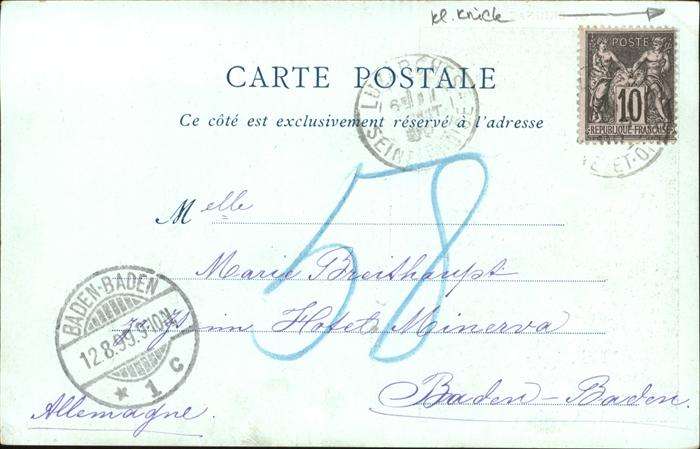 kl. Knick
CARTE POSTALE
Ce côté est exclusivement réservé à l'adresse
POSTE
10
REPUBLIQUE FRANÇAISE
ET-OISE
LUZARCHES
SEINE
58
Melle
Marie Breithaupt
im Hotel Minerva
Baden-Baden.
Allemagne.
BADEN-BADEN
12.8.99.9-10N.
* 1 c